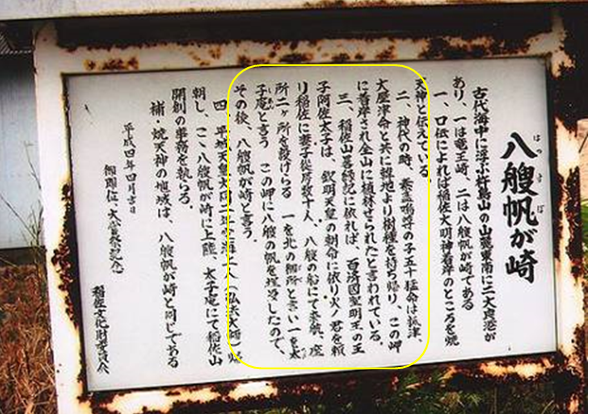 八艘帆が崎
はっそぽ
古代海中に浮ぶ杵島山の山麓東南に二大良港が
あり、一は竜王崎、二は八艘帆が崎である
一、口伝によれば稲佐大明神着岸のところを焼
天神と伝えている。
二、神代の時、素盞嗚尊の子五十猛命は抓津
大屋津命と共に韓地より樹種を持ち帰り、この岬
に着岸され全山に植林せられたと言われている。
三、稲佐山畧縁記に依れば、百済国聖明王の王
子阿佐太子は、欽明天皇の朝命に依り火ノ君を頼
り稲佐に妻子従者数十人、八艘の船にて来航、座
所二ヶ所を設けらる 一を北の御所と言い一を太
子庵と言う この岬に八艘の帆を埋没したので、
その後、八艘帆が崎と言う。
四、平城天皇大同二年空海上人（弘法大師）帰
朝し、こゝ八艘帆が崎に上陸、太子庵にて稲佐山
開創の事務を執らる。
補、焼天神の地域は、八艘帆が崎と同じである
平成四年四月吉日
稲佐文化財委員会